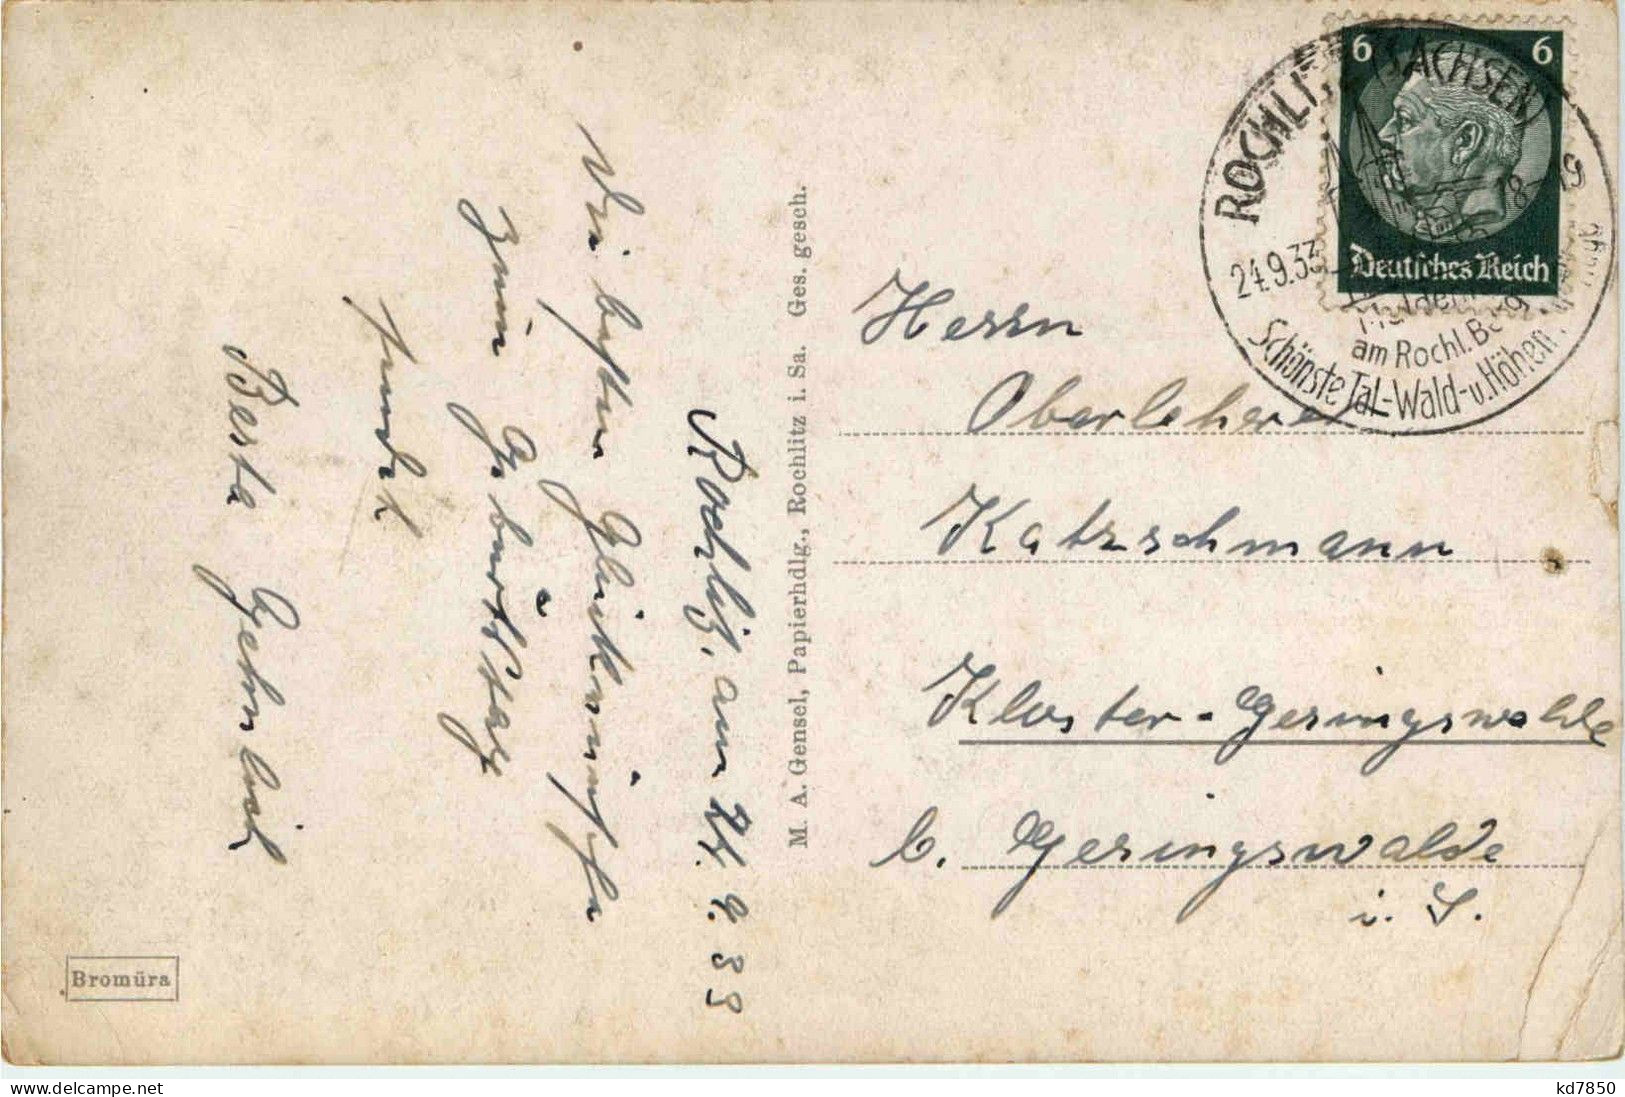 Rochlitz, am 24. 9. 33
Die besten Glückwünsche
zum Geburtstag
sendet
Berta
M. A. Gensel, Papierhdlg., Rochlitz i. Sa. Ges. gesch.
Bromüra
6 6
Deutsches Reich
ROCHLITZ (SACHSEN)
24.9.33 18-19
am Rochl. Berg
Schönste Tal-Wald-u.Höhen
Herrn
Oberlehrer
Katzschmann
Kloster-Geringswalde
b. Geringswalde
i. S.
kd7850